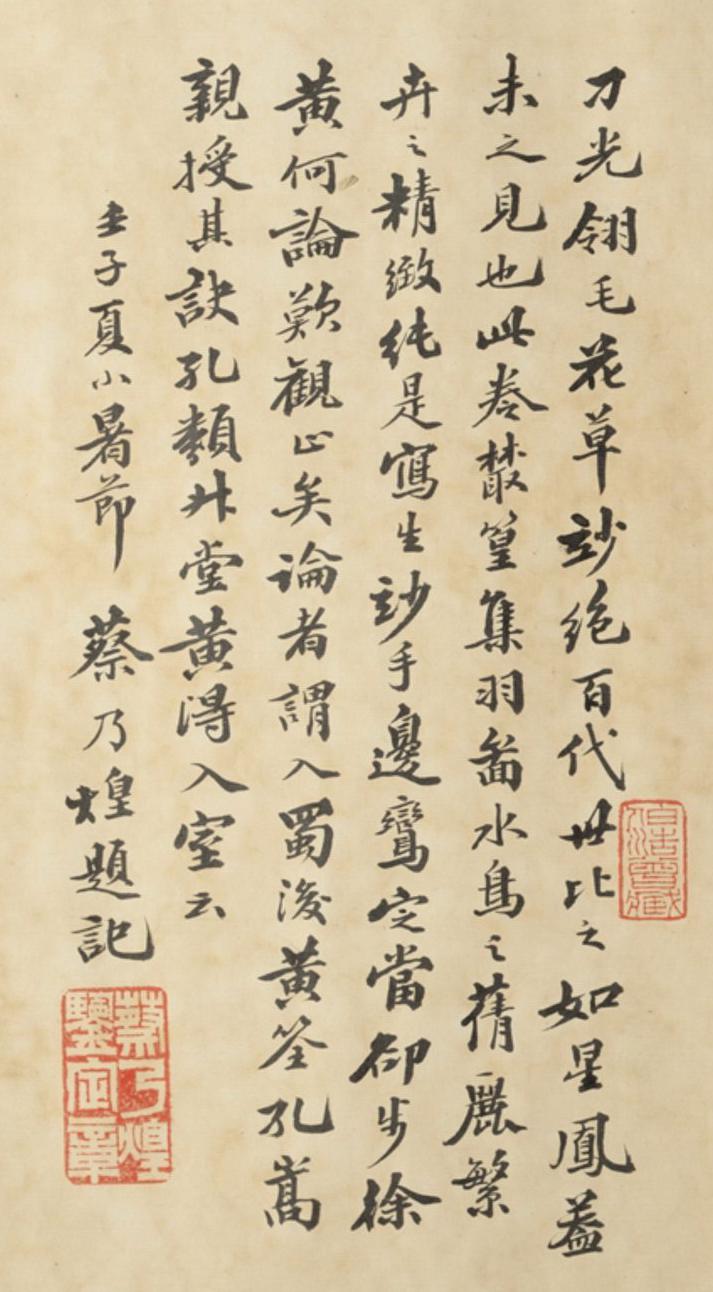 刀光翎毛花草玅絶百代世比之如星鳳葢
未之見也此卷叢篁集羽畜水鳥之蒨麗繁
卉之精緻純是寫生玅手邊鸞定當卻步徐
黄何論歎觀止矣論者謂入蜀後黄筌孔嵩
親授其訣孔類升堂黄得入室云
壬子夏小暑節 蔡乃煌題記
蔡乃煌
鑒定章